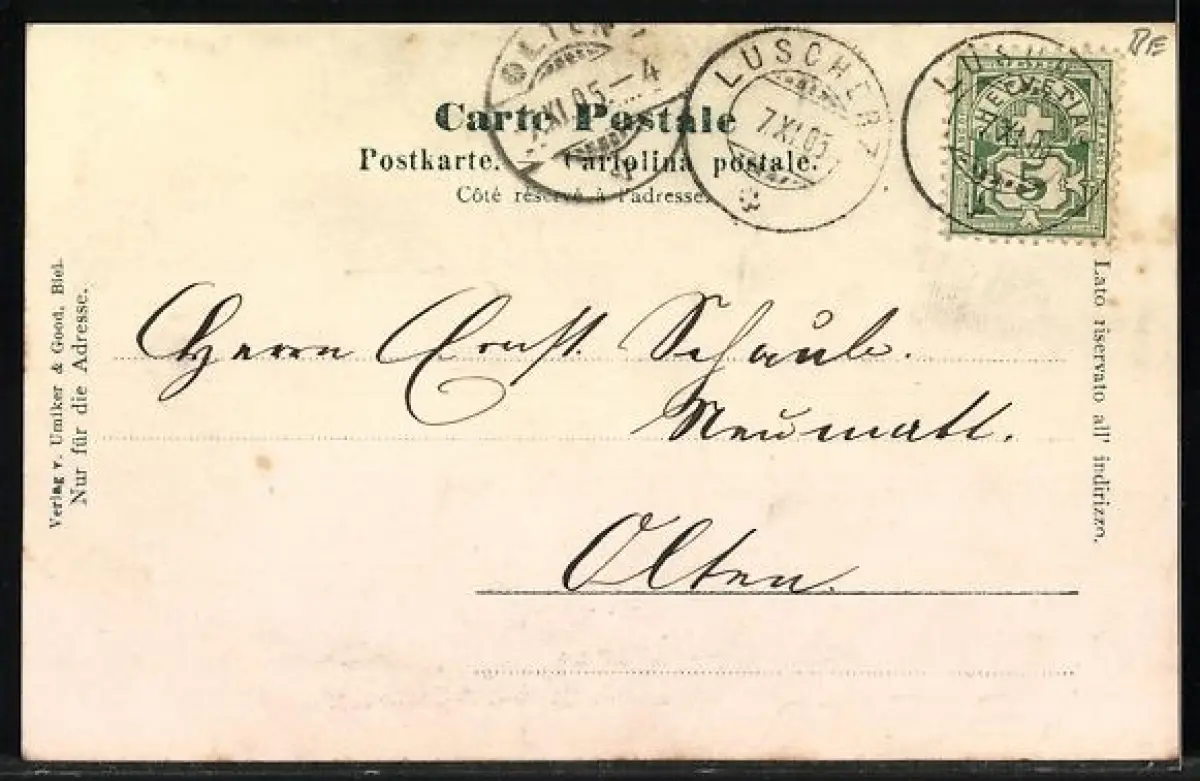 BE
OLTEN
XI.05-4
LUSCHERZ
7 XI.05
LUS
HELVETIA
5
Carte Postale
Postkarte. — Cartolina postale.
Côté réservé à l'adresse.
Verlag v. Umiker & Good, Biel.
Nur für die Adresse.
Lato riservato all' indirizzo.
Herrn Ernst. Schaub.
Neumatt.
Olten.